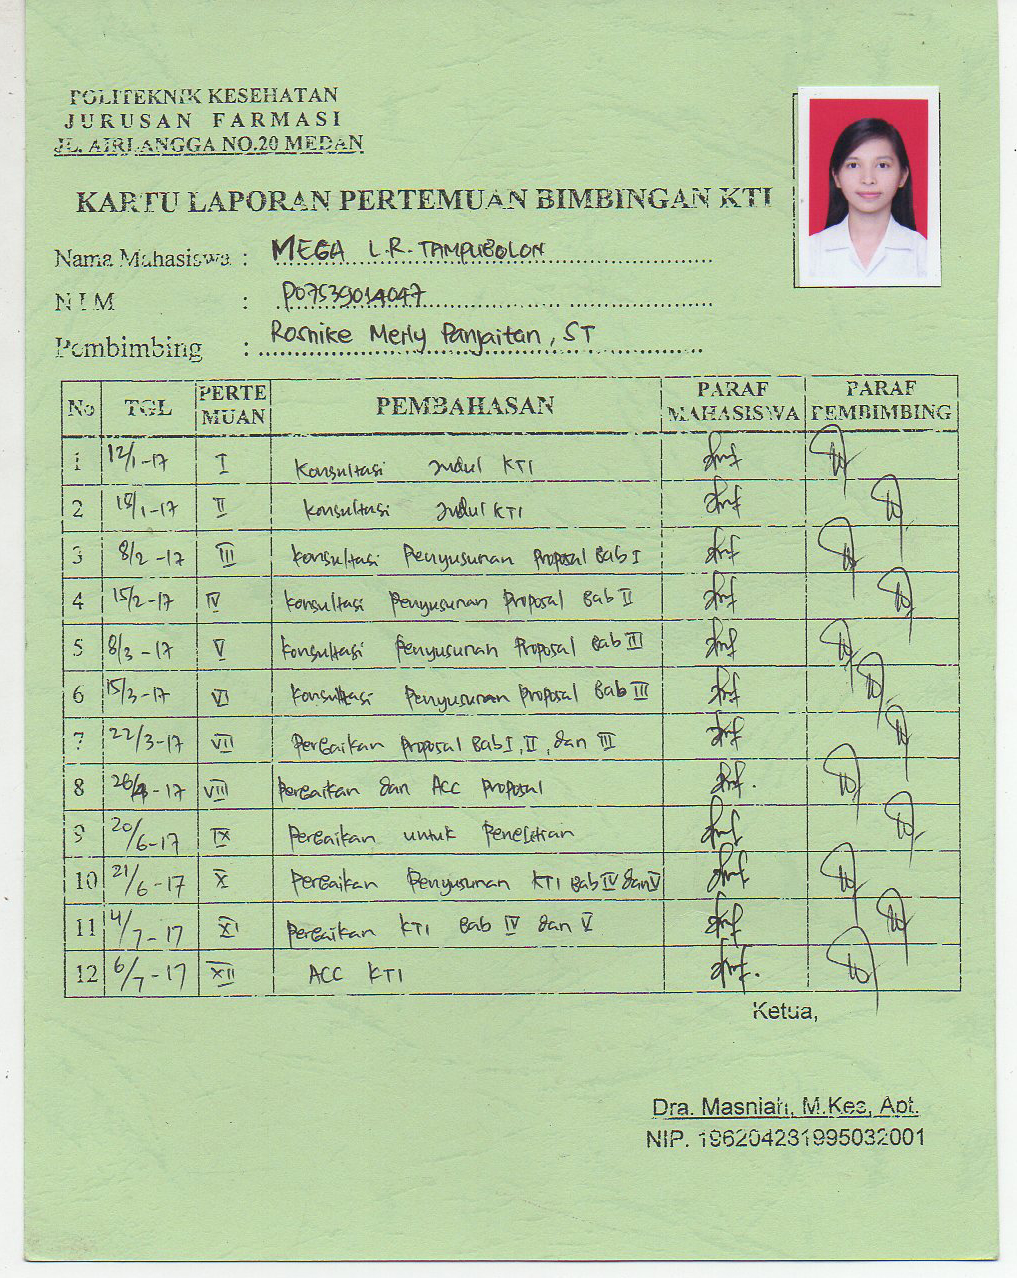 POLITEKNIK KESEHATAN
JURUSAN FARMASI
JL. AIRLANGGA NO.20 MEDAN
KARTU LAPORAN PERTEMUAN BIMBINGAN KTI
Nama Mahasiswa : MEGA L.R. TAMPUBOLON
NIM : P07539014047
Pembimbing : Rosnike Merly Panjaitan, ST
No TGL PERTE MUAN PEMBAHASAN PARAF MAHASISWA PARAF PEMBIMBING
1 12/1-17 I Konsultasi Judul KTI
2 18/1-17 II Konsultasi Judul KTI
3 8/2-17 III Konsultasi Penyusunan Proposal Bab I
4 15/2-17 IV Konsultasi Penyusunan Proposal Bab II
5 8/3-17 V Konsultasi Penyusunan Proposal Bab III
6 15/3-17 VI Konsultasi Penyusunan Proposal Bab III
7 22/3-17 VII Perbaikan Proposal Bab I, II, dan III
8 VIII Perbaikan dan ACC Proposal
9 20/6-17 IX Perbaikan untuk Penelitian
10 21/6-17 X Perbaikan Penyusunan KTI Bab IV dan V
11 4/7-17 XI Perbaikan KTI Bab IV dan V
12 6/7-17 XII ACC KTI
Ketua,
Dra. Masniah, M.Kes, Apt.
NIP. 196204281995032001